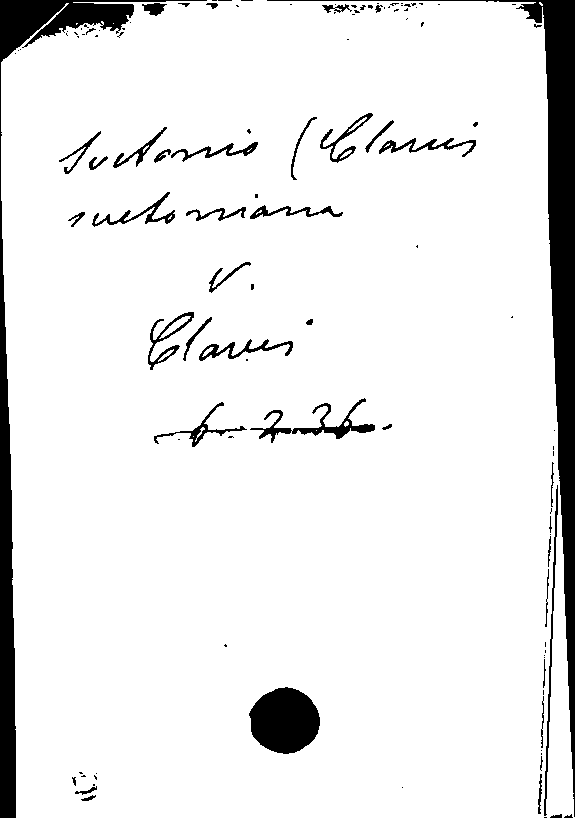 Svetonio (Clavis
svetoniana
V.
Clavis
6. 2. 36.